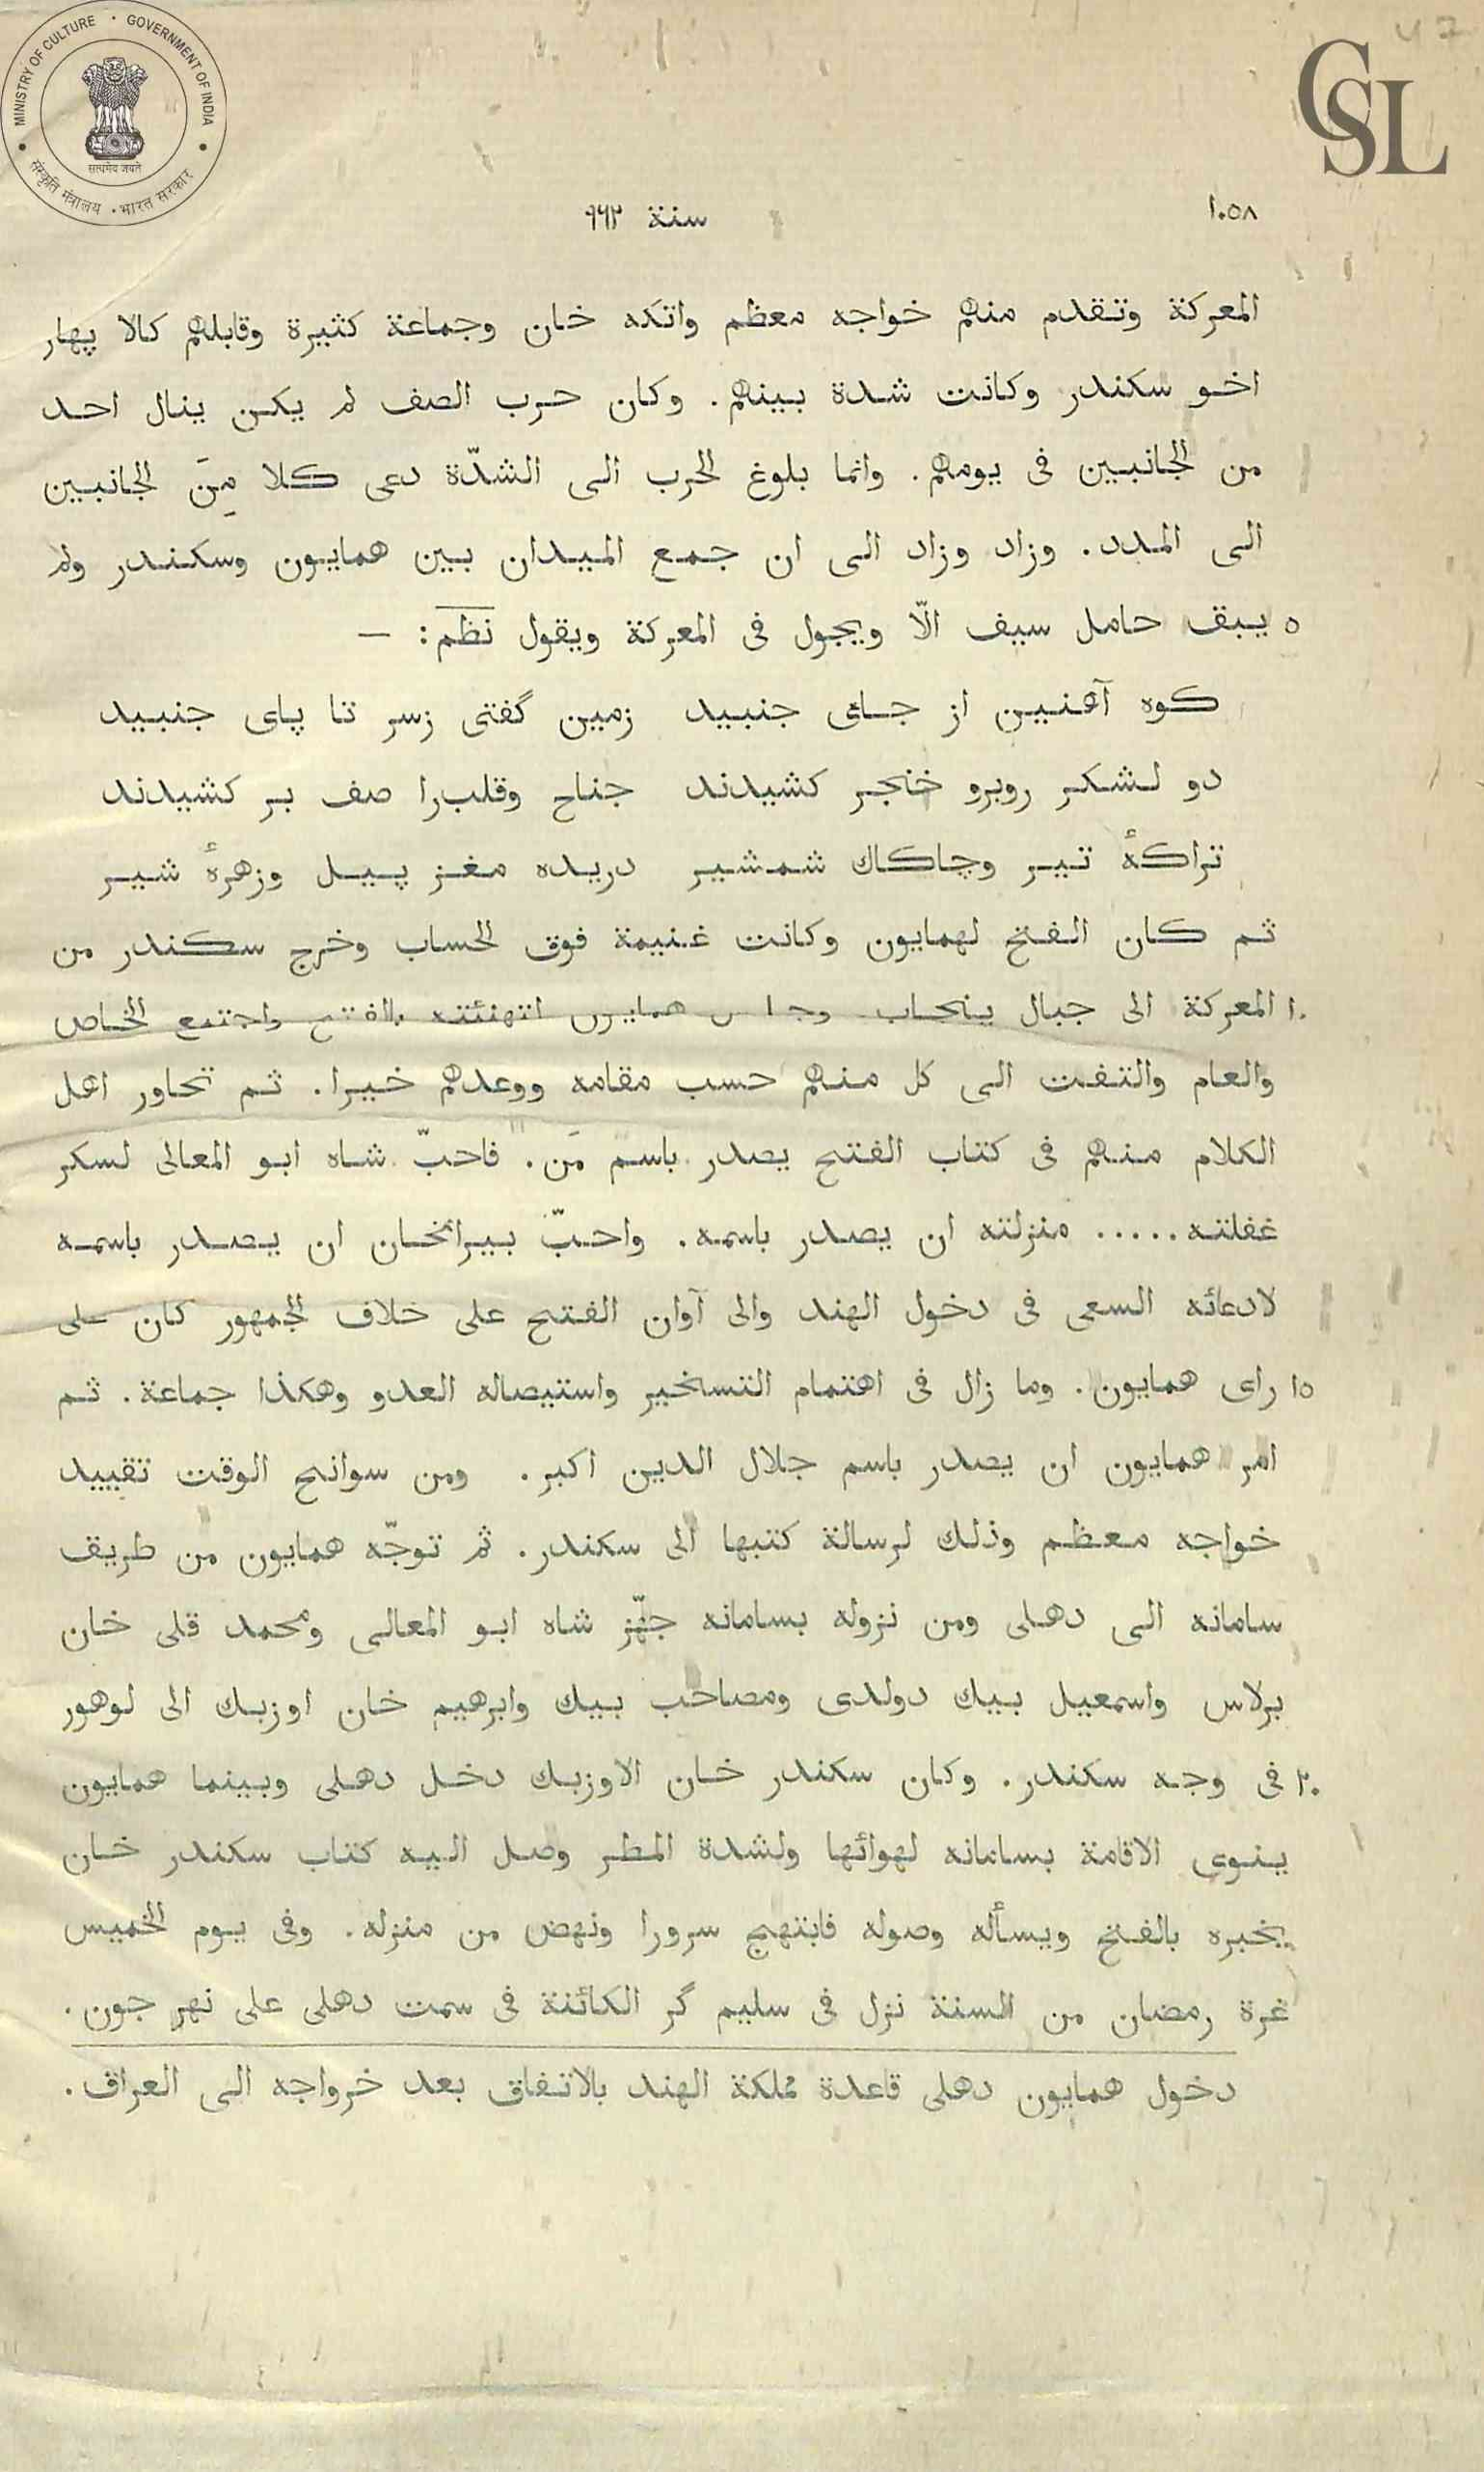 MINISTRY OF CULTURE · GOVERNMENT OF INDIA
सत्यमेव जयते
संस्कृति मंत्रालय · भारत सरकार
CSL
47
١٠٥٨ سنة ٩٦٢
المعركة وتقدم منهم خواجه معظم واتكه خان وجماعة كثيرة وقابلهم كالا پهار
اخو سكندر وكانت شدة بينهم. وكان حرب الصف لم يكن ينال احد
من الجانبين فى يومهم. وانما بلوغ الحرب الى الشدّة دعى كلا مِنَ الجانبين
الى المدد. وزاد وزاد الى ان جمع الميدان بين همايون وسكندر ولم
٥ يبق حامل سيف الّا ويجول فى المعركة ويقول نظم: —
كوه آهنين از جاى جنبيد زمين گفتى زسر تا پاى جنبيد
دو لشكر روبرو خنجر كشيدند جناح وقلب را صف بر كشيدند
تراكهٔ تير وچاكاك شمشير دريده مغز پيل وزهرهٔ شير
ثم كان الفتح لهمايون وكانت غنيمة فوق الحساب وخرج سكندر من
١٠ المعركة الى جبال پنجاب وجلس همايون لتهنئته بالفتح واجتمع الخاص
والعام والتفت الى كل منهم حسب مقامه ووعدهم خيرا. ثم تحاور اهل
الكلام منهم فى كتاب الفتح يصدر باسم مَن. فاحبّ شاه ابو المعالى لسكر
غفلته ..... منزلته ان يصدر باسمه. واحبّ بيرانخان ان يصدر باسمه
لادعائه السعى فى دخول الهند والى آوان الفتح على خلاف الجمهور كان على
١٥ راى همايون. وما زال فى اهتمام التسخير واستيصاله العدو وهكذا جماعة. ثم
امر همايون ان يصدر باسم جلال الدين اكبر. ومن سوانح الوقت تقييد
خواجه معظم وذلك لرسالة كتبها الى سكندر. ثم توجّه همايون من طريف
سامانه الى دهلى ومن نزوله بسامانه جهّز شاه ابو المعالى ومحمد قلى خان
برلاس واسمعيل بيك دولدى ومصاحب بيك وابرهيم خان اوزبك الى لوهور
٢٠ فى وجه سكندر. وكان سكندر خان الاوزبك دخل دهلى وبينما همايون
ينوى الاقامة بسامانه لهوائها ولشدة المطر وصل اليه كتاب سكندر خان
يخبره بالفتح ويسأله وصوله فابتهج سرورا ونهض من منزله. وفى يوم الخميس
غرة رمضان من السنة نزل فى سليم گر الكائنة فى سمت دهلى على نهر جون.
دخول همايون دهلى قاعدة مملكة الهند بالاتفاق بعد خرواجه الى العراق.